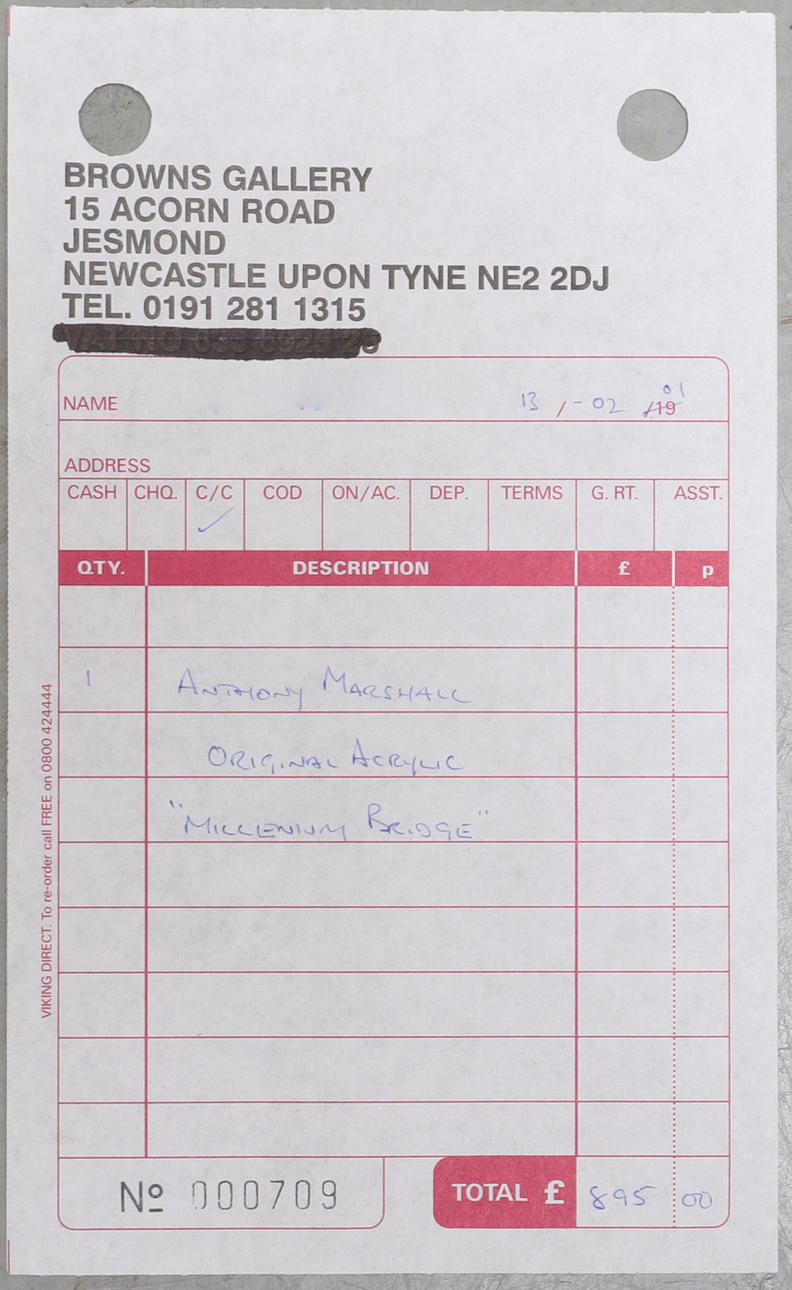 BROWNS GALLERY
15 ACORN ROAD
JESMOND
NEWCASTLE UPON TYNE NE2 2DJ
TEL. 0191 281 1315
NAME 13 / - 02 /19 01
ADDRESS
CASH CHQ. C/C COD ON/AC. DEP. TERMS G. RT. ASST.
QTY. DESCRIPTION £ p
1 ANTHONY MARSHALL
ORIGINAL ACRYLIC
"MILLENIUM BRIDGE"
VIKING DIRECT. To re-order call FREE on 0800 424444
Nº 000709 TOTAL £ 895 00